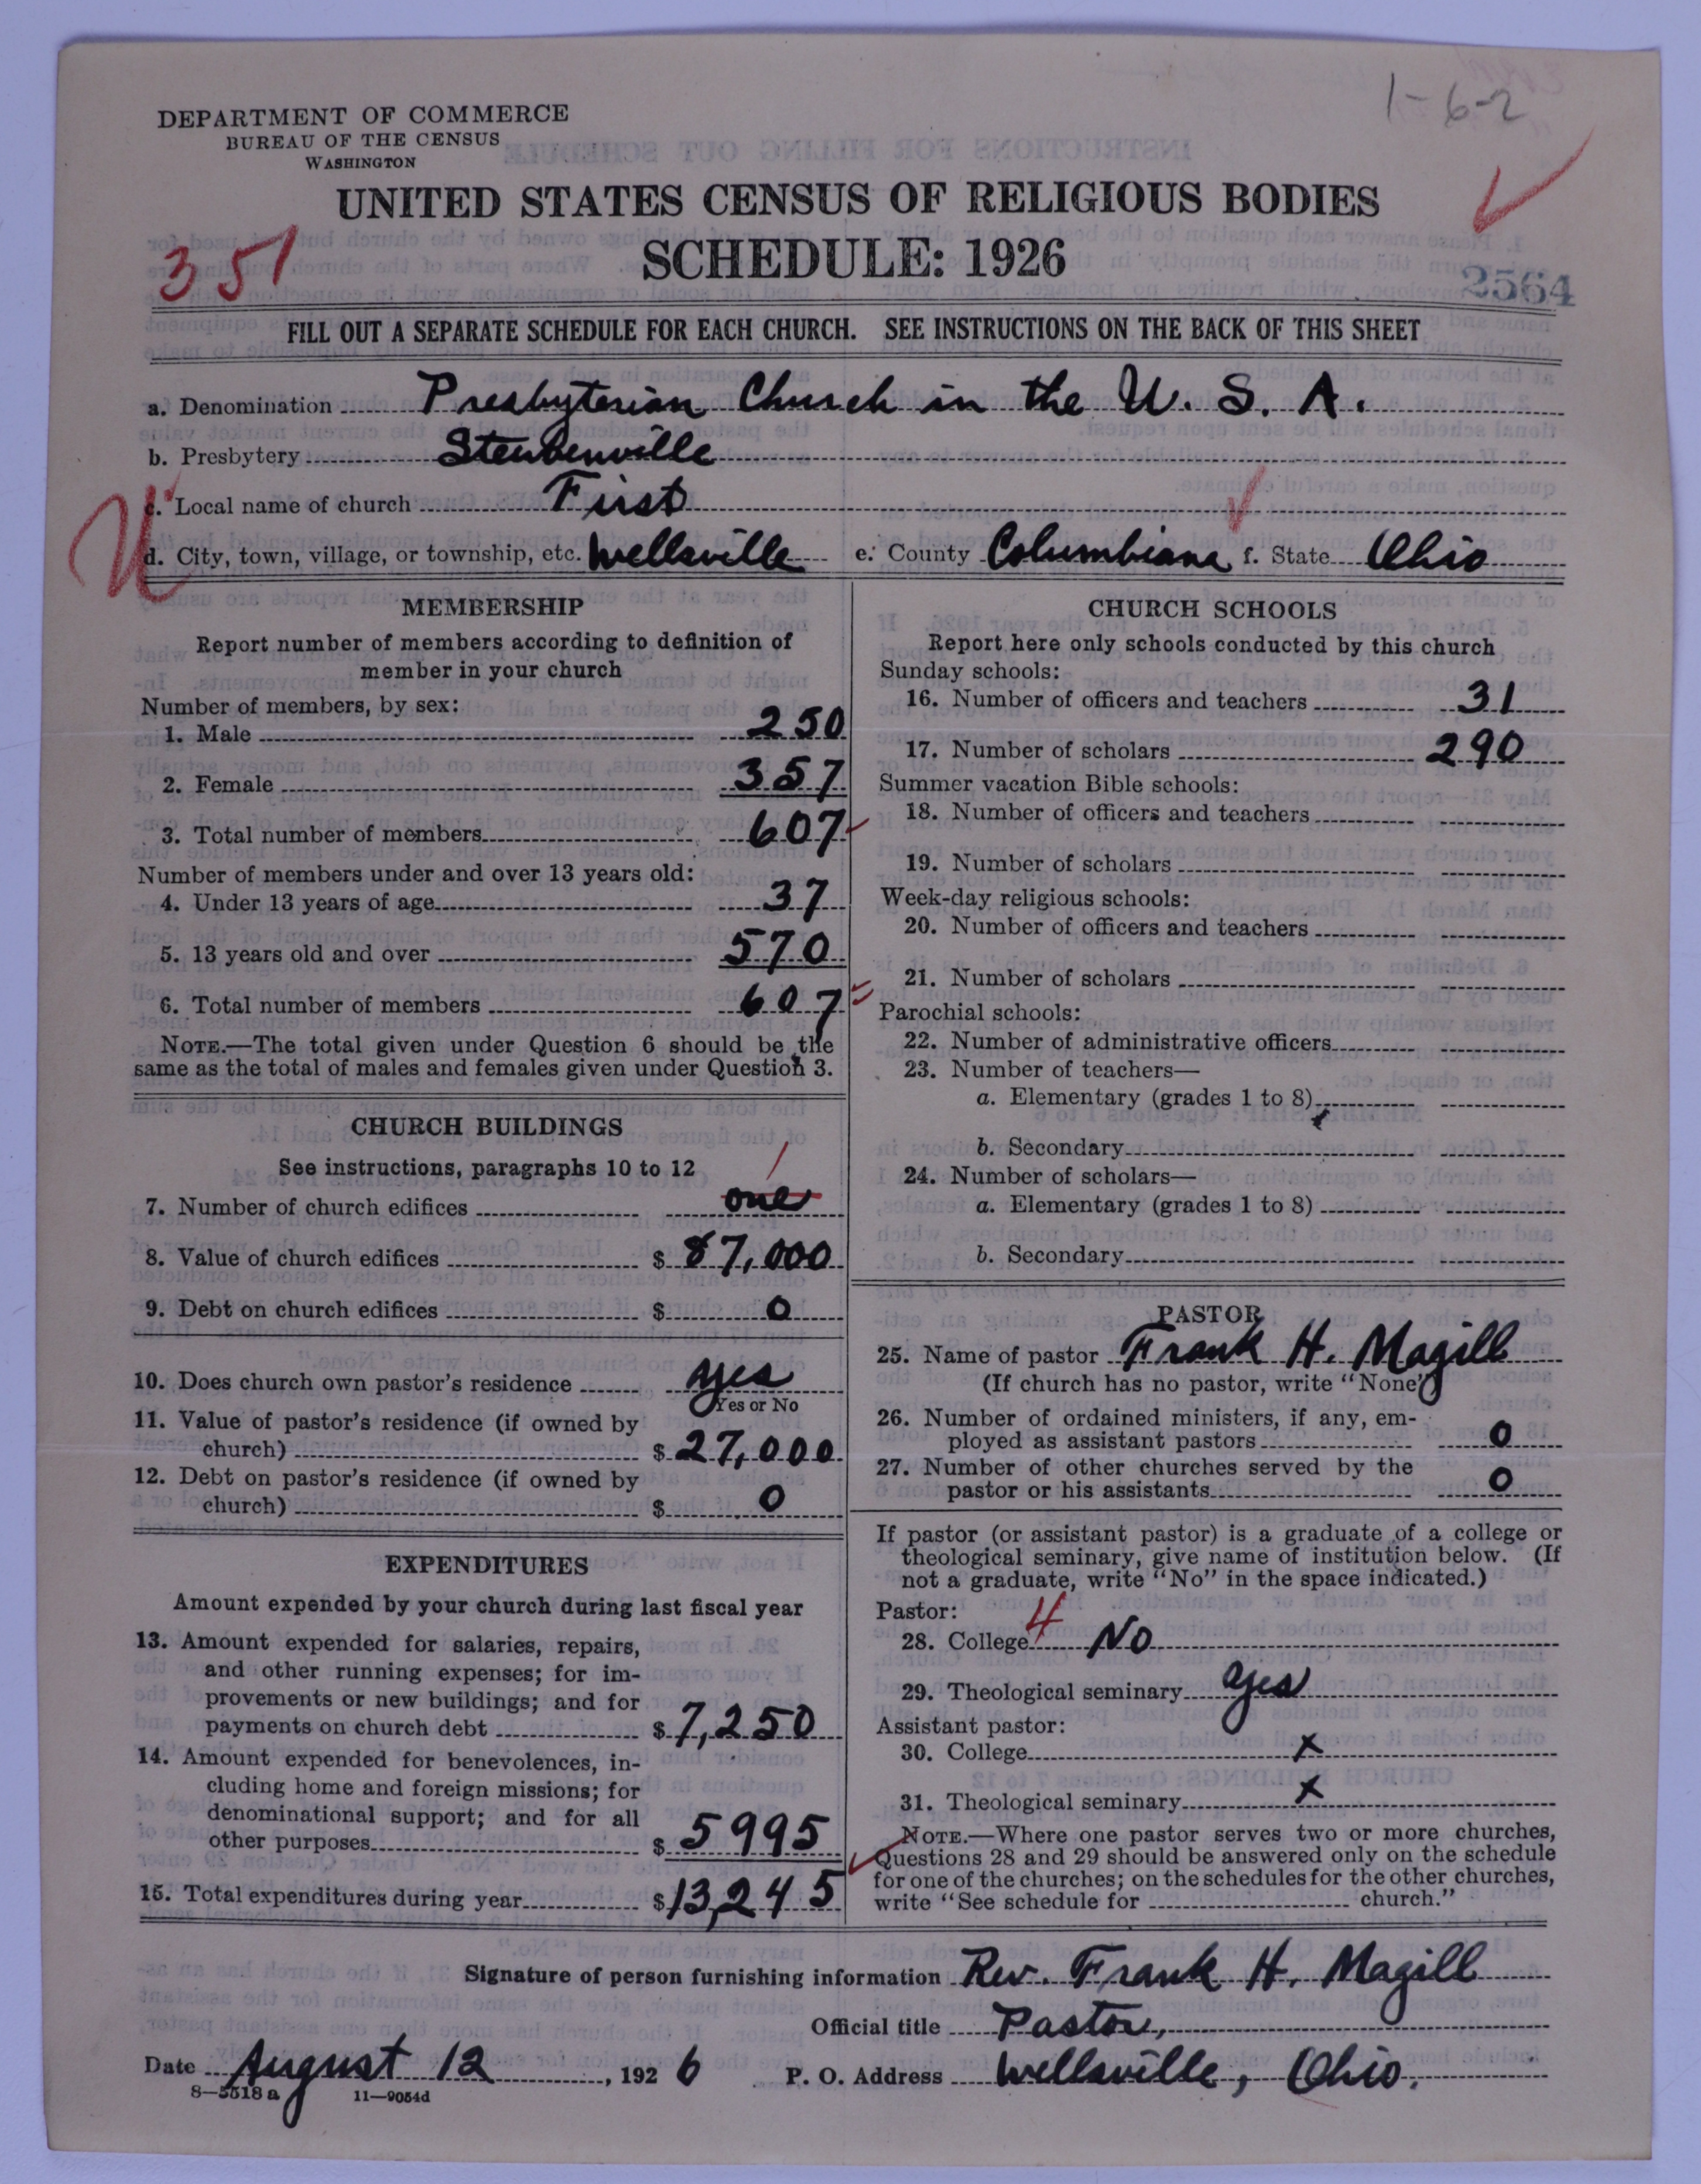 1-6-2
DEPARTMENT OF COMMERCE
BUREAU OF THE CENSUS
WASHINGTON
UNITED STATES CENSUS OF RELIGIOUS BODIES
SCHEDULE: 1926
351
2564
FILL OUT A SEPARATE SCHEDULE FOR EACH CHURCH. SEE INSTRUCTIONS ON THE BACK OF THIS SHEET
a. Denomination Presbyterian Church in the U. S. A.
b. Presbytery Steubenville
c. Local name of church First
d. City, town, village, or township, etc. Wellsville e. County Columbiana f. State Ohio
MEMBERSHIP
Report number of members according to definition of
member in your church
Number of members, by sex:
1. Male 250
2. Female 357
3. Total number of members 607
Number of members under and over 13 years old:
4. Under 13 years of age 37
5. 13 years old and over 570
6. Total number of members 607
NOTE.—The total given under Question 6 should be the
same as the total of males and females given under Question 3.
CHURCH BUILDINGS
See instructions, paragraphs 10 to 12
1
7. Number of church edifices one
8. Value of church edifices $ 87,000
9. Debt on church edifices $ 0
10. Does church own pastor's residence yes
Yes or No
11. Value of pastor's residence (if owned by
church) $ 27,000
12. Debt on pastor's residence (if owned by
church) $ 0
EXPENDITURES
Amount expended by your church during last fiscal year
13. Amount expended for salaries, repairs,
and other running expenses; for im-
provements or new buildings; and for
payments on church debt $ 7,250
14. Amount expended for benevolences, in-
cluding home and foreign missions; for
denominational support; and for all
other purposes $ 5995
15. Total expenditures during year $ 13,245
CHURCH SCHOOLS
Report here only schools conducted by this church
Sunday schools:
16. Number of officers and teachers 31
17. Number of scholars 290
Summer vacation Bible schools:
18. Number of officers and teachers
19. Number of scholars
Week-day religious schools:
20. Number of officers and teachers
21. Number of scholars
Parochial schools:
22. Number of administrative officers
23. Number of teachers—
a. Elementary (grades 1 to 8)
b. Secondary
24. Number of scholars—
a. Elementary (grades 1 to 8)
b. Secondary
PASTOR
25. Name of pastor Frank H. Magill
(If church has no pastor, write "None")
26. Number of ordained ministers, if any, em-
ployed as assistant pastors 0
27. Number of other churches served by the
pastor or his assistants 0
If pastor (or assistant pastor) is a graduate of a college or
theological seminary, give name of institution below. (If
not a graduate, write "No" in the space indicated.)
Pastor:
28. College 4 No
29. Theological seminary yes
Assistant pastor:
30. College x
31. Theological seminary x
NOTE.—Where one pastor serves two or more churches,
Questions 28 and 29 should be answered only on the schedule
for one of the churches; on the schedules for the other churches,
write "See schedule for church."
Signature of person furnishing information Rev. Frank H. Magill
Official title Pastor,
Date August 12, 1926 P. O. Address Wellsville, Ohio.
8—5518 a 11—9054d